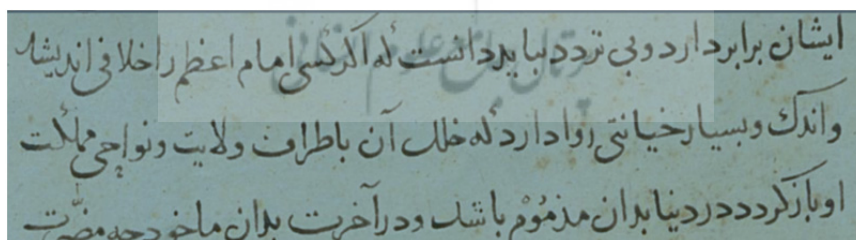 ایشان برابر دارد و بی تردد بباید دانست که اکر کسی امام اعظم را خلافی اندیشد
واندک و بسیار خیانتی روا دارد که خلل آن باطراف ولایت و نواحی مملکت
او باز کردد در دنیا بدان مذموم باشد و در آخرت بدان ماخوذ چه مضرت